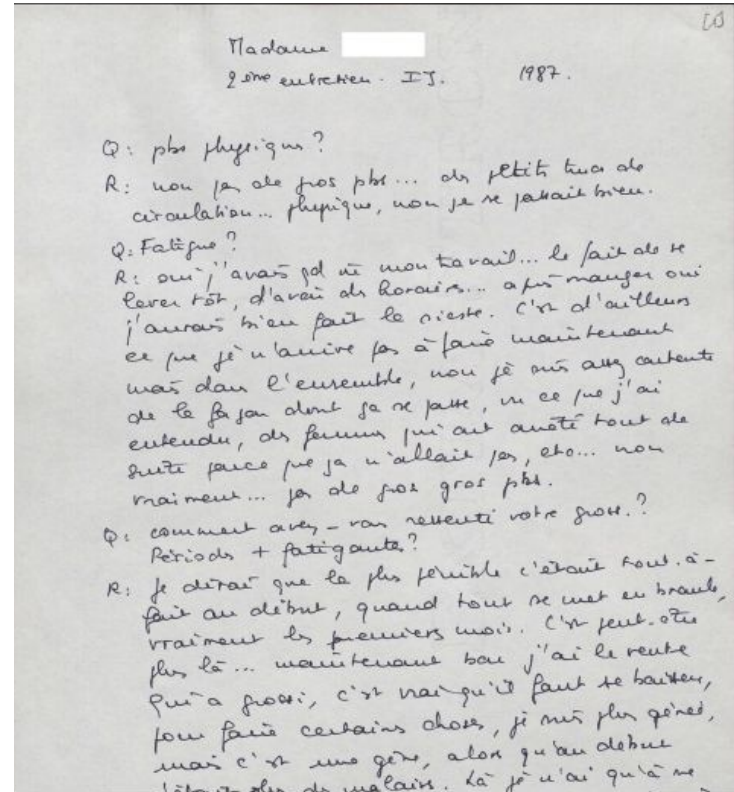 (1)
Madame
2ème entretien. IJ. 1987.
Q: pbs physiques?
R: non pas de gros pbs... des petits trucs de
circulation... physique, non je se passait bien.
Q: Fatigue?
R: oui j'avais qd m̂ mon travail... le fait de se
lever tôt, d'avoir des horaires... après manger oui
j'aurais bien fait la sieste. C'est d'ailleurs
ce que je n'arrive pas à faire maintenant
mais dans l'ensemble, non je suis assez contente
de la façon dont ça se passe, vu ce que j'ai
entendu, des femmes qui ont arrêté tout de
suite parce que ça n'allait pas, etc... non
vraiment... pas de gros gros pbs.
Q: comment avez-vous ressenti votre gross.?
Périodes + fatigantes?
R: Je dirai que le plus pénible c'était tout-à-
fait au début, quand tout se met en branle,
vraiment les premiers mois. C'est peut-être
plus là... maintenant bon j'ai le ventre
qui a grossi, c'est vrai qu'il faut se baisser,
pour faire certaines choses, je suis plus gênée,
mais c'est une gêne, alors qu'au début
c'était plus des malaises. Là je n'ai qu'à me